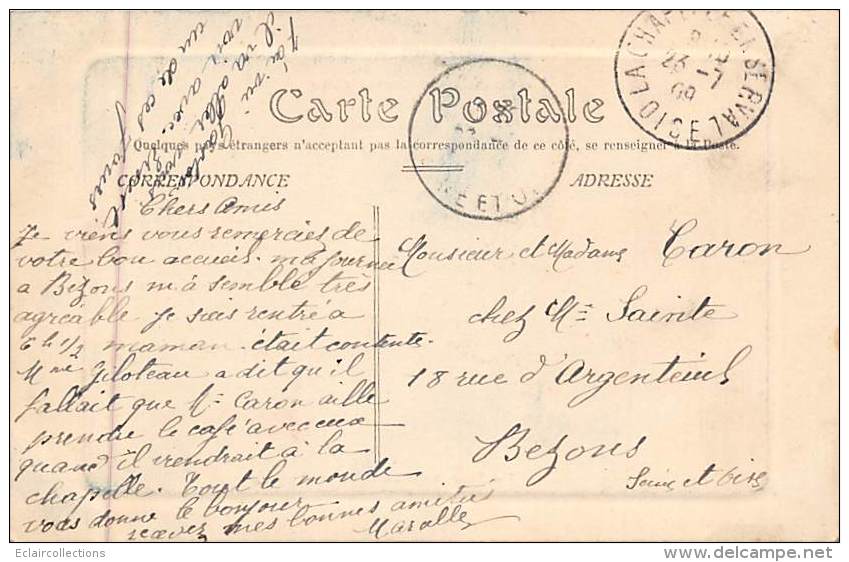 J'ai vu
il va aller
voir avec
un de ces jours
Carte Postale
Quelques pays étrangers n'acceptant pas la correspondance de ce côté, se renseigner à la Poste.
CORRESPONDANCE
ADRESSE
LA CHAPELLE EN SERVAL OISE
23 -7
09
E ET OI
Chers Amis
Je viens vous remercier de
votre bon accueil. ma journée
a Bezons m'à semblé très
agréable. Je suis rentré a
6h 1/2 maman était contente.
Mme Piloteau a dit qu'il
fallait que Mr Caron aille
prendre le café avec eux
quand il viendrait à la
chapelle. Tout le monde
vous donne le bonjour
recevez mes bonnes amitiés
Marcelle
Monsieur et Madame Caron
chez Mr Sainte
18 rue d'Argenteuil
Bezons
Seine et Oise
Eclaircollections
www.delcampe.net